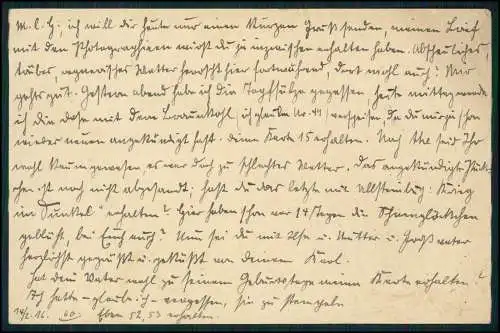 M. l. H., ich will dir heute nur einen kurzen Gruß senden, meinen Brief
mit den Photographieen wirst du ja inzwischen erhalten haben. Abscheuliches,
trübes, regnerisches Wetter herrscht hier fortwährend, dort wohl auch? Mir
gehts gut. Gestern abend habe ich die Topfsülze gegessen heute mittag werde
ich die Dose mit dem Braunkohl, ich glaube No. 41, verspeisen da du mir ja schon
wieder neuen angekündigt hast. deine Karte 15 erhalten. Nach seid Ihr
wohl kaum gewesen, es war doch zu schlechtes Wetter. Das angekündigte Päck-
chen ist noch nicht abgesandt; hast du das letzte mit Ullsteinbuch: Krieg
im Dunkel" erhalten? Hier haben schon vor 14 Tagen die Schneeglöckchen
geblüht, bei Euch auch? Nun sei du mit Ilse u. Mutter u. Großvater
herzlichst gegrüßt u. geküßt von deinem Karl.
hat dein Vater wohl zu seinem Geburtstage meine Karte erhalten?
Ich hatte - glaube ich - vergessen, sie zu stempeln
14/2. 16. 60. Eben 52, 53 erhalten.